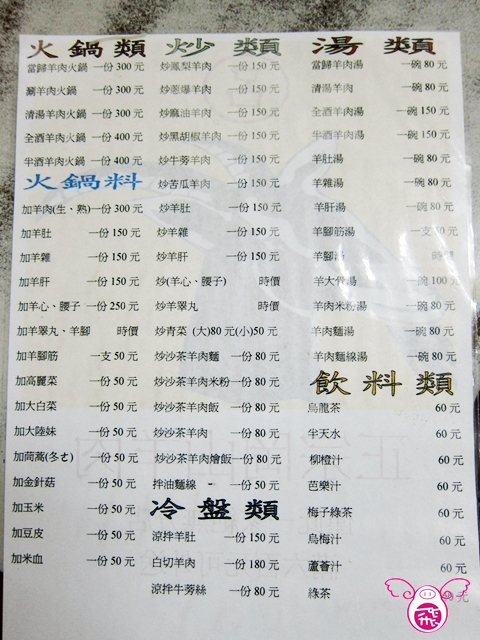 火鍋類
當歸羊肉火鍋 一份 300 元
涮羊肉火鍋 一份 300 元
清湯羊肉火鍋 一份 300 元
全酒羊肉火鍋 一份 400 元
半酒羊肉火鍋 一份 400 元
火鍋料
加羊肉(生、熟)一份 300 元
加羊肚 一份 150 元
加羊雜 一份 150 元
加羊肝 一份 150 元
加羊心、腰子 一份 250 元
加羊睪丸、羊腳 時價
加羊腳筋 一支 50 元
加高麗菜 一份 50 元
加大白菜 一份 50 元
加大陸妹 一份 50 元
加茼蒿(冬ㄜ) 一份 50 元
加金針菇 一份 50 元
加玉米 一份 50 元
加豆皮 一份 50 元
加米血 一份 50 元
炒類
炒鳳梨羊肉 一份 150 元
炒蔥爆羊肉 一份 150 元
炒麻油羊肉 一份 150 元
炒黑胡椒羊肉 一份 150 元
炒牛蒡羊肉 一份 150 元
炒苦瓜羊肉 一份 150 元
炒羊肚 一份 150 元
炒羊雜 一份 150 元
炒羊肝 一份 150 元
炒(羊心、腰子) 時價
炒羊睪丸 時價
炒青菜 (大)80 元(小)50 元
炒沙茶羊肉麵 一份 80 元
炒沙茶羊肉米粉 一份 80 元
炒沙茶羊肉飯 一份 80 元
炒沙茶羊肉 一份 80 元
炒沙茶羊肉燴飯 一份 80 元
拌油麵線 一份 50 元
冷盤類
涼拌羊肚 一份 150 元
白切羊肉 一份 180 元
涼拌牛蒡絲 一份 80 元
湯類
當歸羊肉湯 一碗 80 元
清湯羊肉 一碗 80 元
全酒羊肉湯 一碗 150 元
半酒羊肉湯 一碗 150 元
羊肚湯 一碗 80 元
羊雜湯 一碗 80 元
羊肝湯 一碗 80 元
羊腳筋湯 一支 50 元
羊腳湯 時價
羊大骨湯 一碗 100 元
羊肉米粉湯 一碗 80 元
羊肉麵湯 一碗 80 元
羊肉麵線湯 一碗 80 元
飲料類
烏龍茶 60 元
半天水 60 元
柳橙汁 60 元
芭樂汁 60 元
梅子綠茶 60 元
烏梅汁 60 元
蘆薈汁 60 元
綠茶 元
飛